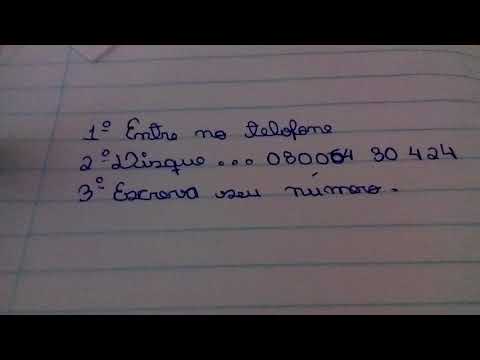 1º Entre no telefone
2º Disque ... 080064 30 424
3º Escreva seu número.